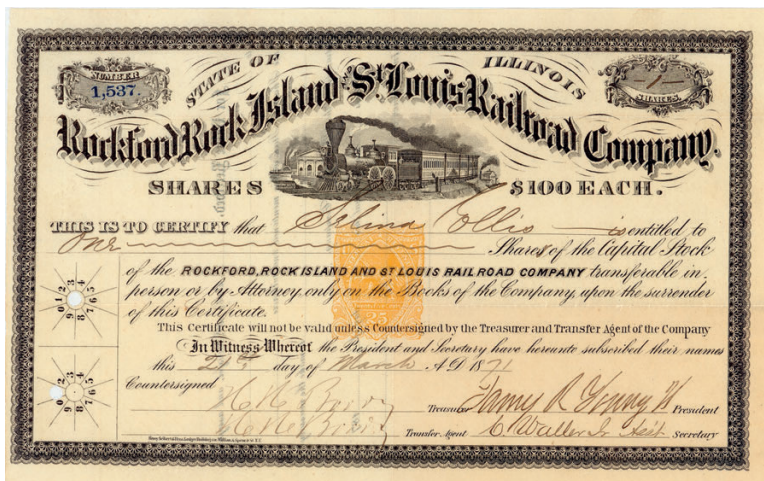 NUMBER
1,537.
STATE OF ILLINOIS
1
SHARES.
Rockford Rock Island and St. Louis Railroad Company.
SHARES $100 EACH.
THIS IS TO CERTIFY that Selina Collis is entitled to
One Shares of the Capital Stock
of the ROCKFORD, ROCK ISLAND AND ST LOUIS RAILROAD COMPANY transferable in
person or by Attorney only on the Books of the Company, upon the surrender
of this Certificate.
This Certificate will not be valid unless Countersigned by the Treasurer and Transfer Agent of the Company
In Witness Whereof the President and Secretary have hereunto subscribed their names
this day of March A.D. 1871
Countersigned
Treasurer President
Transfer Agent Secretary
25
0 1 2 3 4 5 6 7 8 9
0 1 2 3 4 5 6 7 8 9